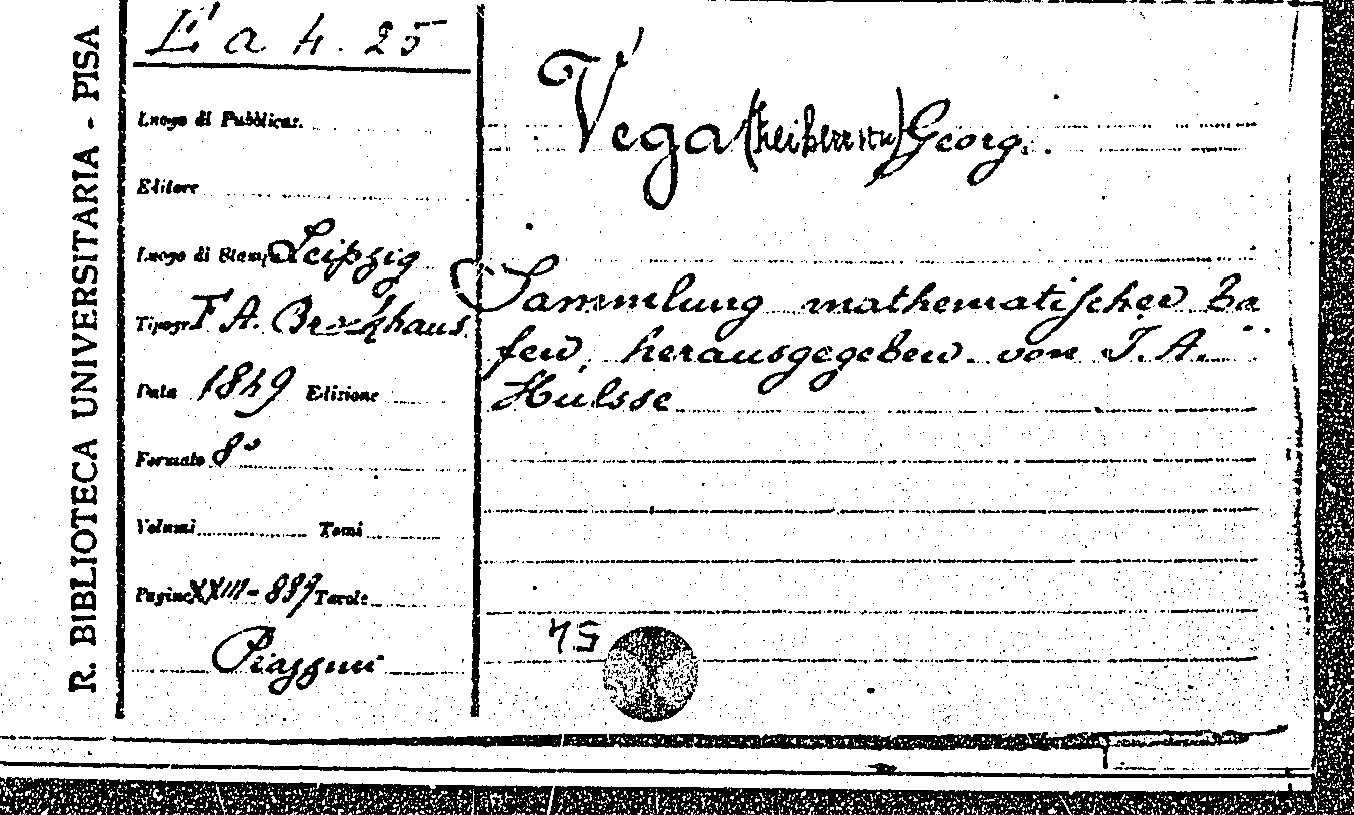 R. BIBLIOTECA UNIVERSITARIA - PISA
E' a 4. 25
Luogo di Pubblicaz.
Editore
Luogo di Stampa Leipzig
Tipogr. F. A. Brockhaus.
Data 1849 Edizione
Formato 8°
Volumi Tomi
Pagine XXIII-889 Tavole
Vega Georg.
Sammlung mathematischer Ta
feln, herausgegeben von J. A.
Hülsse